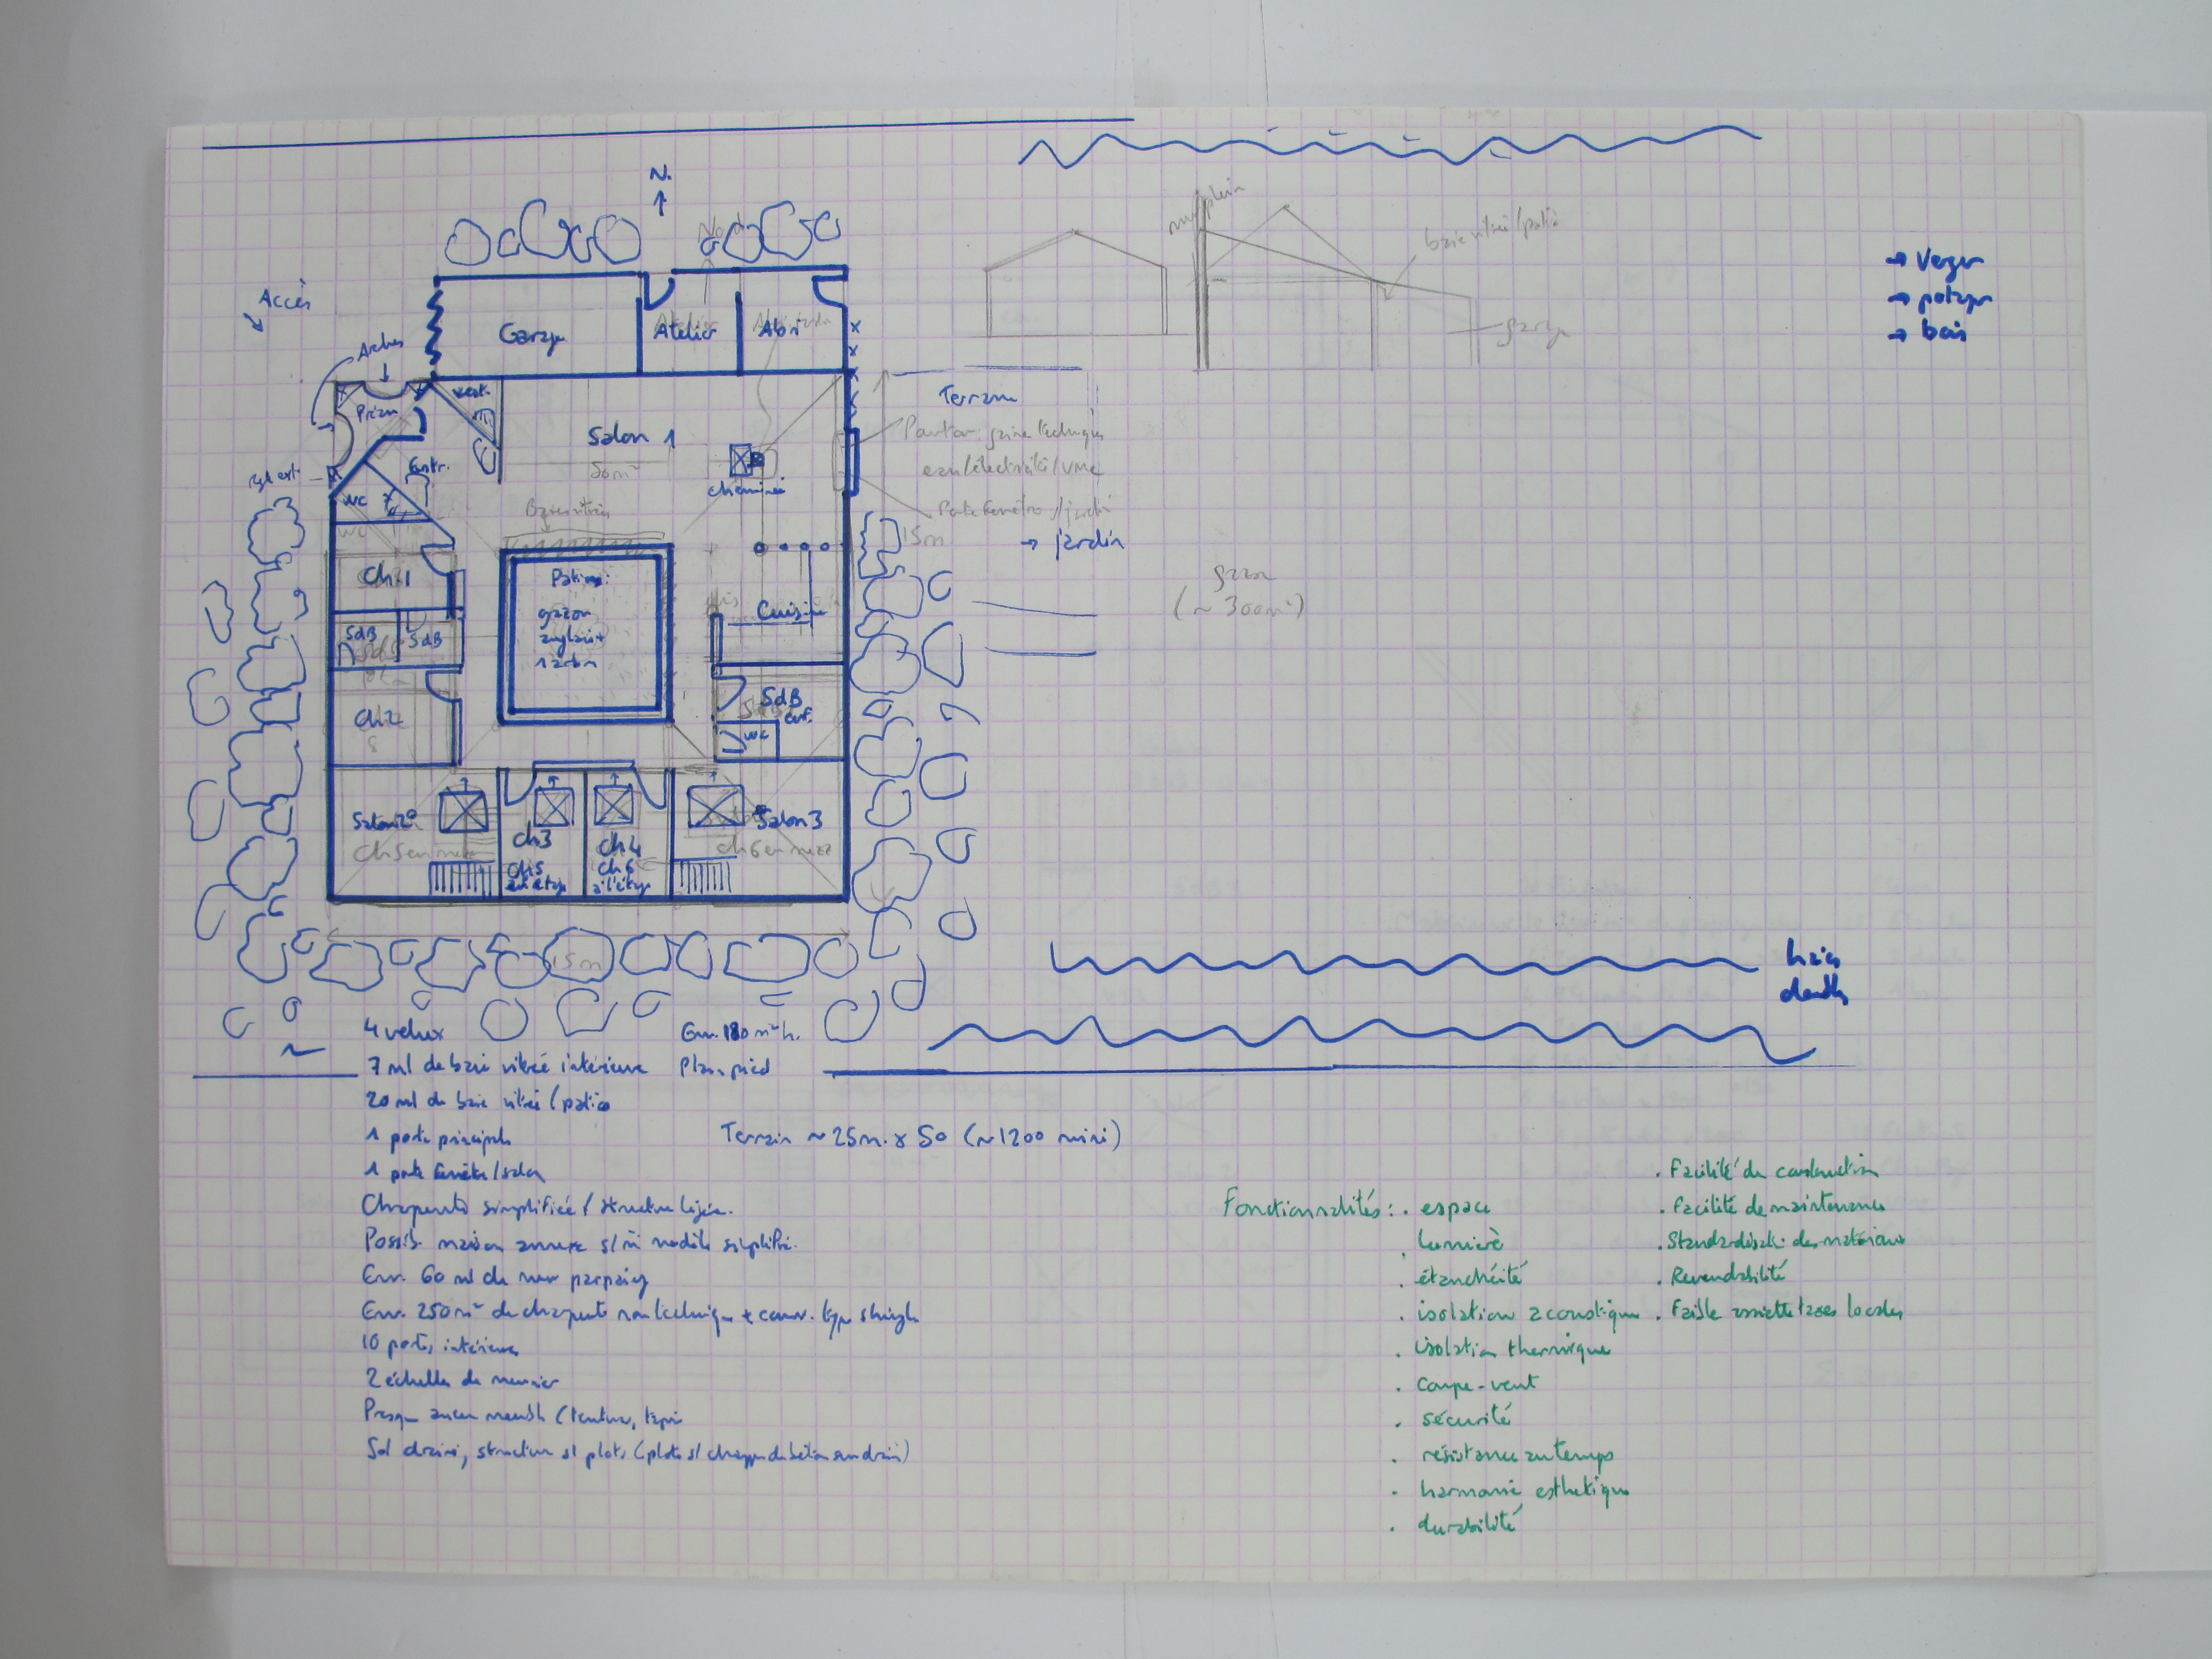 N.
Nord
Accès
Arches
Garage
Atelier
Abri
Préau
Vest.
Salon 1
50 m²
Entr.
WC
cheminée
Baies vitrées
Ch.1
SdB
SdB
Ch2
Patio:
gazon
anglais +
1 arbre
Cuisine
SdB
enf.
WC
Salon 2
Ch5 en mezz
Ch3
Ch5
à l'étage
Ch4
Ch6
à l'étage
Salon 3
Ch6 en mezz
15m
mur plein
baie vitrée/patio
garage
Terrasse
gaine technique
eau/électricité/VMC
Porte fenêtre s/jardin
15m
→ jardin
gazon
(~ 300m²)
→ Verger
→ potager
→ bois
haies
doubles
4 velux
Env. 180 m² h.
7 ml de baie vitrée intérieure
Plain pied
20 ml de baie vitrée / patio
1 porte principale
Terrain ~ 25m. x 50 (~1200 mini)
1 porte fenêtre/salon
Charpente simplifiée / structure légère.
Possib. maison annexe s/ m̂ modèle simplifié.
Env. 60 ml de mur parpaing
Env. 250 m² de charpente non technique + couv. type shingle
10 portes intérieures
2 échelles de meunier
Presque aucun meuble (tenture, tapis
Sol drainé, structure s/ plots (plots s/ chappe de béton sur drain)
Fonctionnalités: . espace
. lumière
. étanchéité
. isolation acoustique
. isolation thermique
. coupe-vent
. sécurité
. résistance au temps
. harmonie esthétique
. durabilité
. Facilité de construction
. Facilité de maintenance
. Standardisat. des matériaux
. Revendabilité
. Faible assiette taxes locales